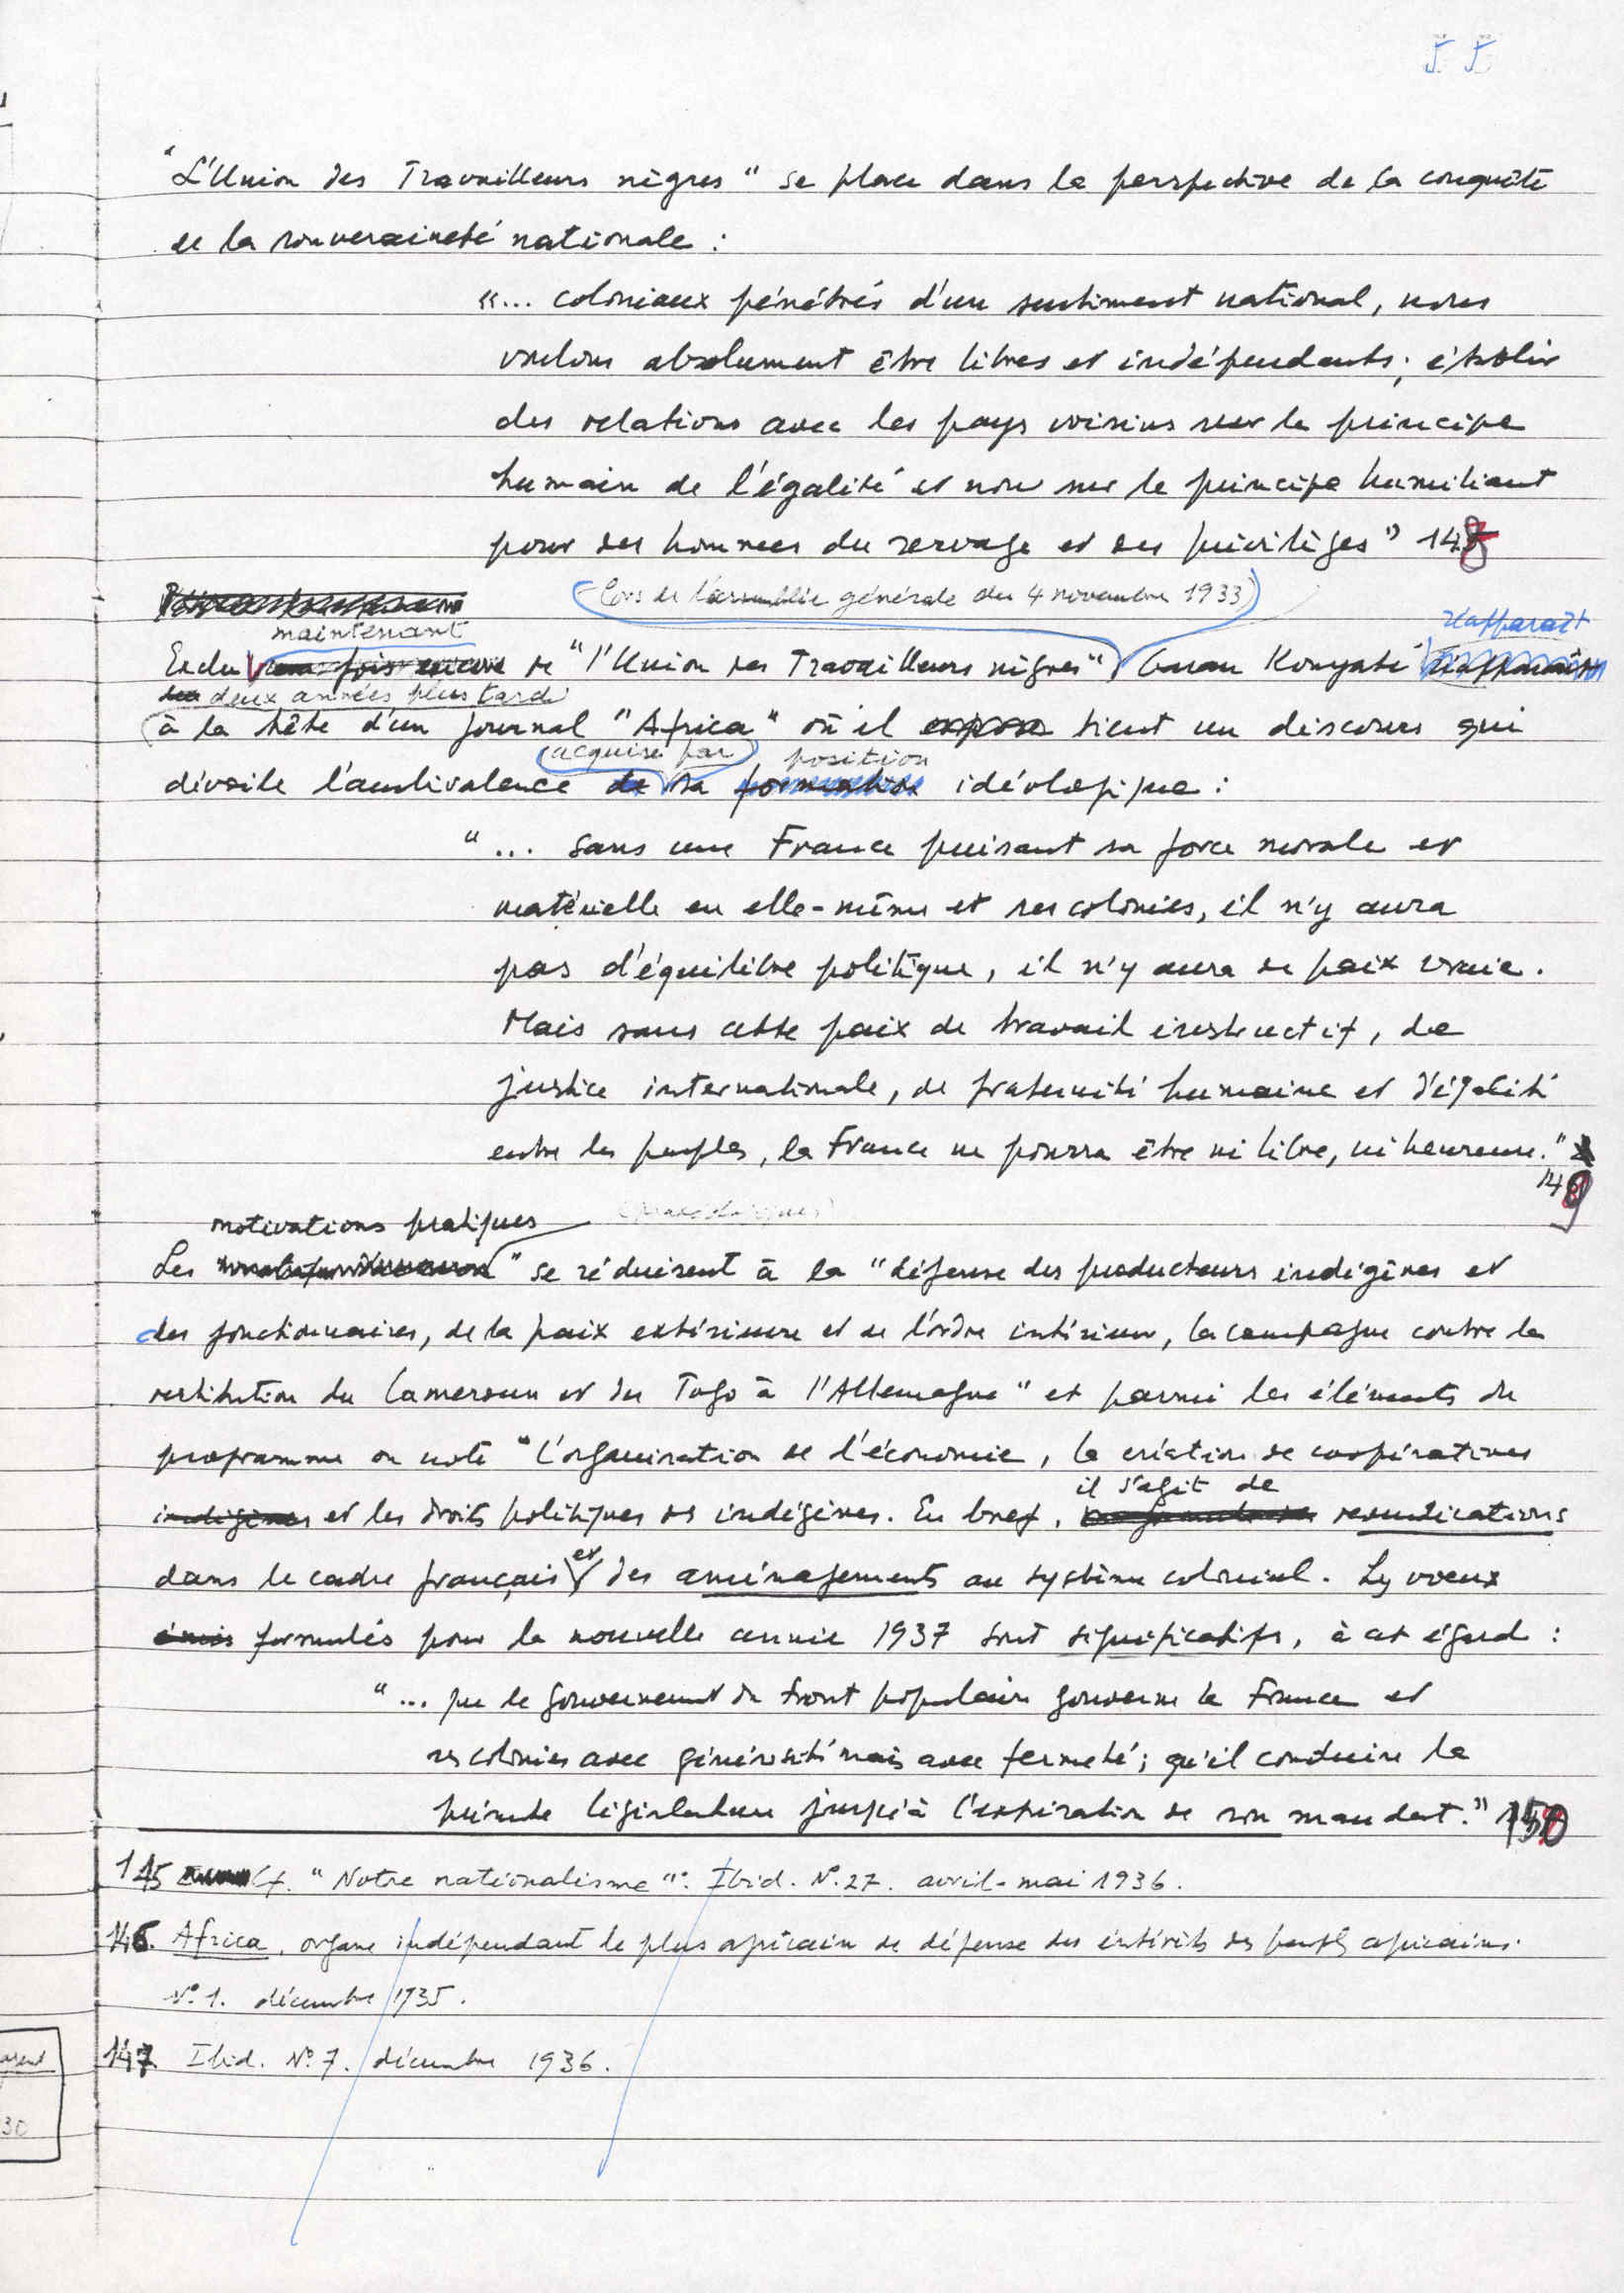 55
"L'Union des Travailleurs nègres" se place dans la perspective de la conquête
de la souveraineté nationale :
"... coloniaux pénétrés d'un sentiment national, nous
voulons absolument être libres et indépendants ; établir
des relations avec les pays voisins sur le principe
humain de l'égalité et non sur le principe humiliant
pour des hommes du servage et des privilèges" 148
(Lors de l'assemblée générale du 4 novembre 1933)
maintenant réapparaît
Exclu une fois encore de "l'Union des Travailleurs nègres" Kouyaté réapparaît
deux années plus tard
à la tête d'un journal "Africa" où il expose tient un discours qui
(acquise par) position
dévoile l'ambivalence de sa formation idéologique :
"... Sans une France puisant sa force morale et
matérielle en elle-même et ses colonies, il n'y aura
pas d'équilibre politique, il n'y aura de paix vraie.
Mais sans cette paix de travail instructif, de
justice internationale, de fraternité humaine et d'égalité
entre les peuples, la France ne pourra être ni libre, ni heureuse."
149
motivations pratiques
Les " se réduisent à la "défense des producteurs indigènes et
des fonctionnaires, de la paix extérieure et de l'ordre intérieur, la campagne contre la
restitution du Cameroun et du Togo à l'Allemagne" et parmi les éléments du
programme on note "l'organisation de l'économie, la création de coopératives
il s'agit de
indigènes et les droits politiques des indigènes. En bref, revendications
dans le cadre français et des aménagements au système colonial. Les voeux
émis formulés pour la nouvelle année 1937 sont significatifs, à cet égard :
"... que le gouvernement du Front populaire gouverne la France et
ses colonies avec générosité mais avec fermeté ; qu'il conduise la
présente législature jusqu'à l'expiration de son mandat." 150
145 Cf. "Notre nationalisme". Ibid. N°. 27. avril-mai 1936.
146. Africa, organe indépendant le plus africain de défense des intérêts des peuples africains.
N° 1. décembre 1935.
147 Ibid. N° 7. décembre 1936.
30